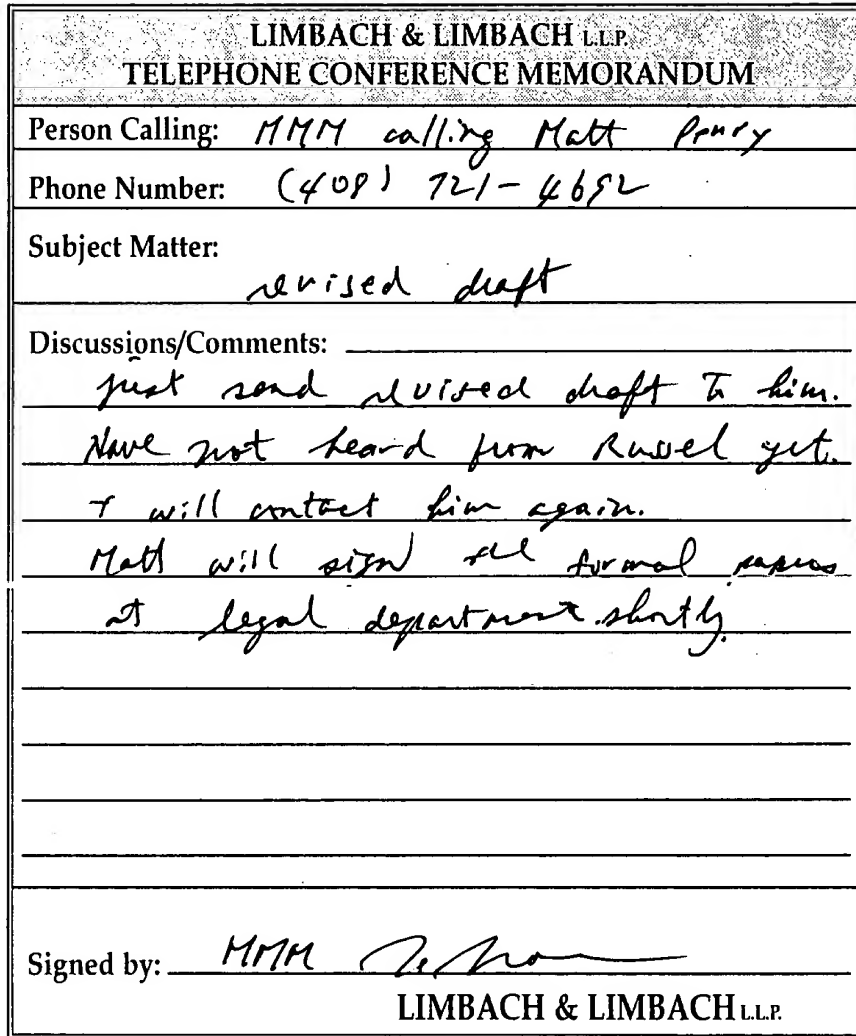 LIMBACH & LIMBACH L.L.P.
TELEPHONE CONFERENCE MEMORANDUM
Person Calling: MMM calling Matt
Phone Number: (408) 721-4692
Subject Matter:
revised draft
Discussions/Comments:
just send revised draft to him.
Have not heard from Russel yet.
I will contact him again.
Matt will sign the formal papers
at legal department shortly.
Signed by: MMM
LIMBACH & LIMBACH L.L.P.